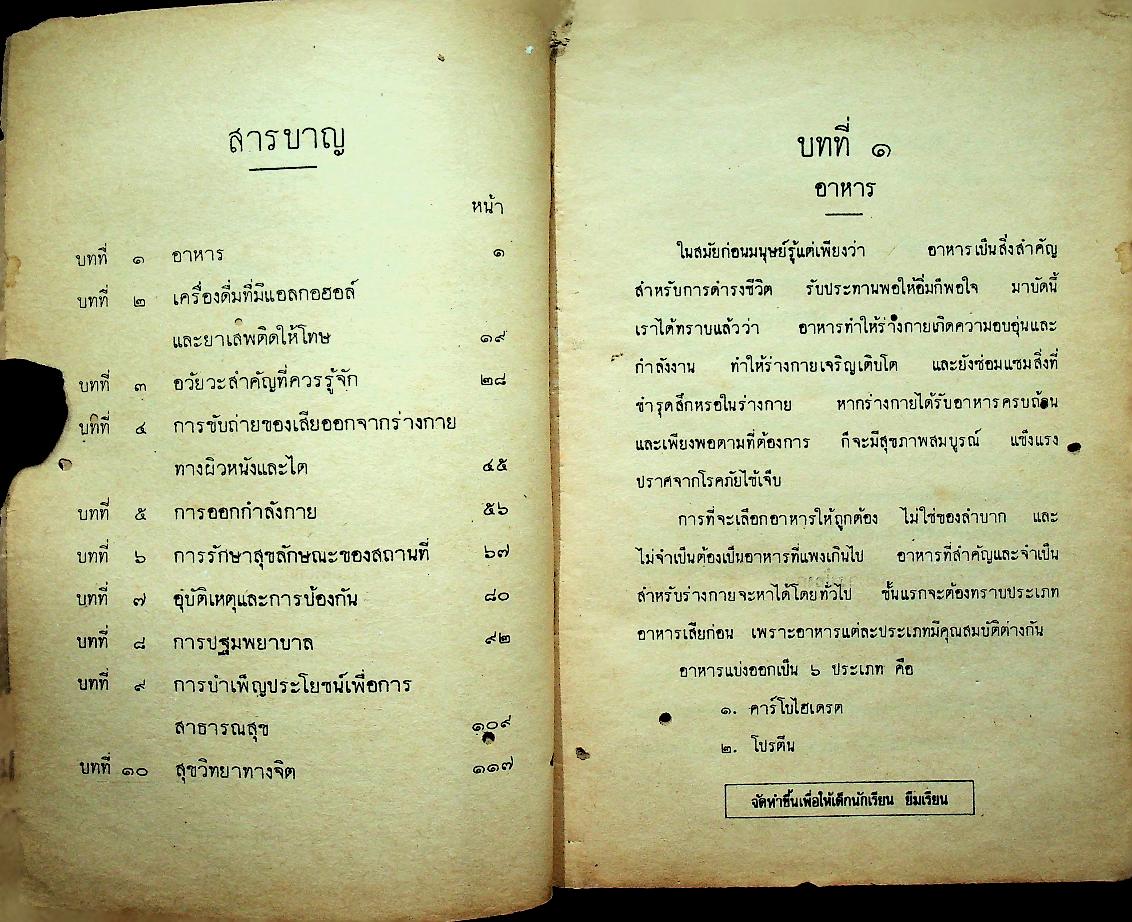 สารบาญ
หน้า
บทที่ ๑ อาหาร ๑
บทที่ ๒ เครื่องดื่มที่มีแอลกอฮอล์
และยาเสพติดให้โทษ ๑๙
บทที่ ๓ อวัยวะสำคัญที่ควรรู้จัก ๒๘
บทที่ ๔ การขับถ่ายของเสียออกจากร่างกาย
ทางผิวหนังและไต ๔๕
บทที่ ๕ การออกกำลังกาย ๕๖
บทที่ ๖ การรักษาสุขลักษณะของสถานที่ ๖๗
บทที่ ๗ อุบัติเหตุและการป้องกัน ๘๐
บทที่ ๘ การปฐมพยาบาล ๙๒
บทที่ ๙ การบำเพ็ญประโยชน์เพื่อการ
สาธารณสุข ๑๐๙
บทที่ ๑๐ สุขวิทยาทางจิต ๑๑๗
บทที่ ๑
อาหาร
ในสมัยก่อนมนุษย์รู้แต่เพียงว่า อาหารเป็นสิ่งสำคัญ
สำหรับการดำรงชีวิต รับประทานพอให้อิ่มก็พอใจ มาบัดนี้
เราได้ทราบแล้วว่า อาหารทำให้ร่างกายเกิดความอบอุ่นและ
กำลังงาน ทำให้ร่างกายเจริญเติบโต และยังซ่อมแซมสิ่งที่
ชำรุดสึกหรอในร่างกาย หากร่างกายได้รับอาหารครบถ้วน
และเพียงพอตามที่ต้องการ ก็จะมีสุขภาพสมบูรณ์ แข็งแรง
ปราศจากโรคภัยไข้เจ็บ
การที่จะเลือกอาหารให้ถูกต้อง ไม่ใช่ของลำบาก และ
ไม่จำเป็นต้องเป็นอาหารที่แพงเกินไป อาหารที่สำคัญและจำเป็น
สำหรับร่างกายจะหาได้โดยทั่วไป ชั้นแรกจะต้องทราบประเภท
อาหารเสียก่อน เพราะอาหารแต่ละประเภทมีคุณสมบัติต่างกัน
อาหารแบ่งออกเป็น ๖ ประเภท คือ
๑. คาร์โบไฮเดรต
๒. โปรตีน
จัดทำขึ้นเพื่อให้เด็กนักเรียน ยืมเรียน